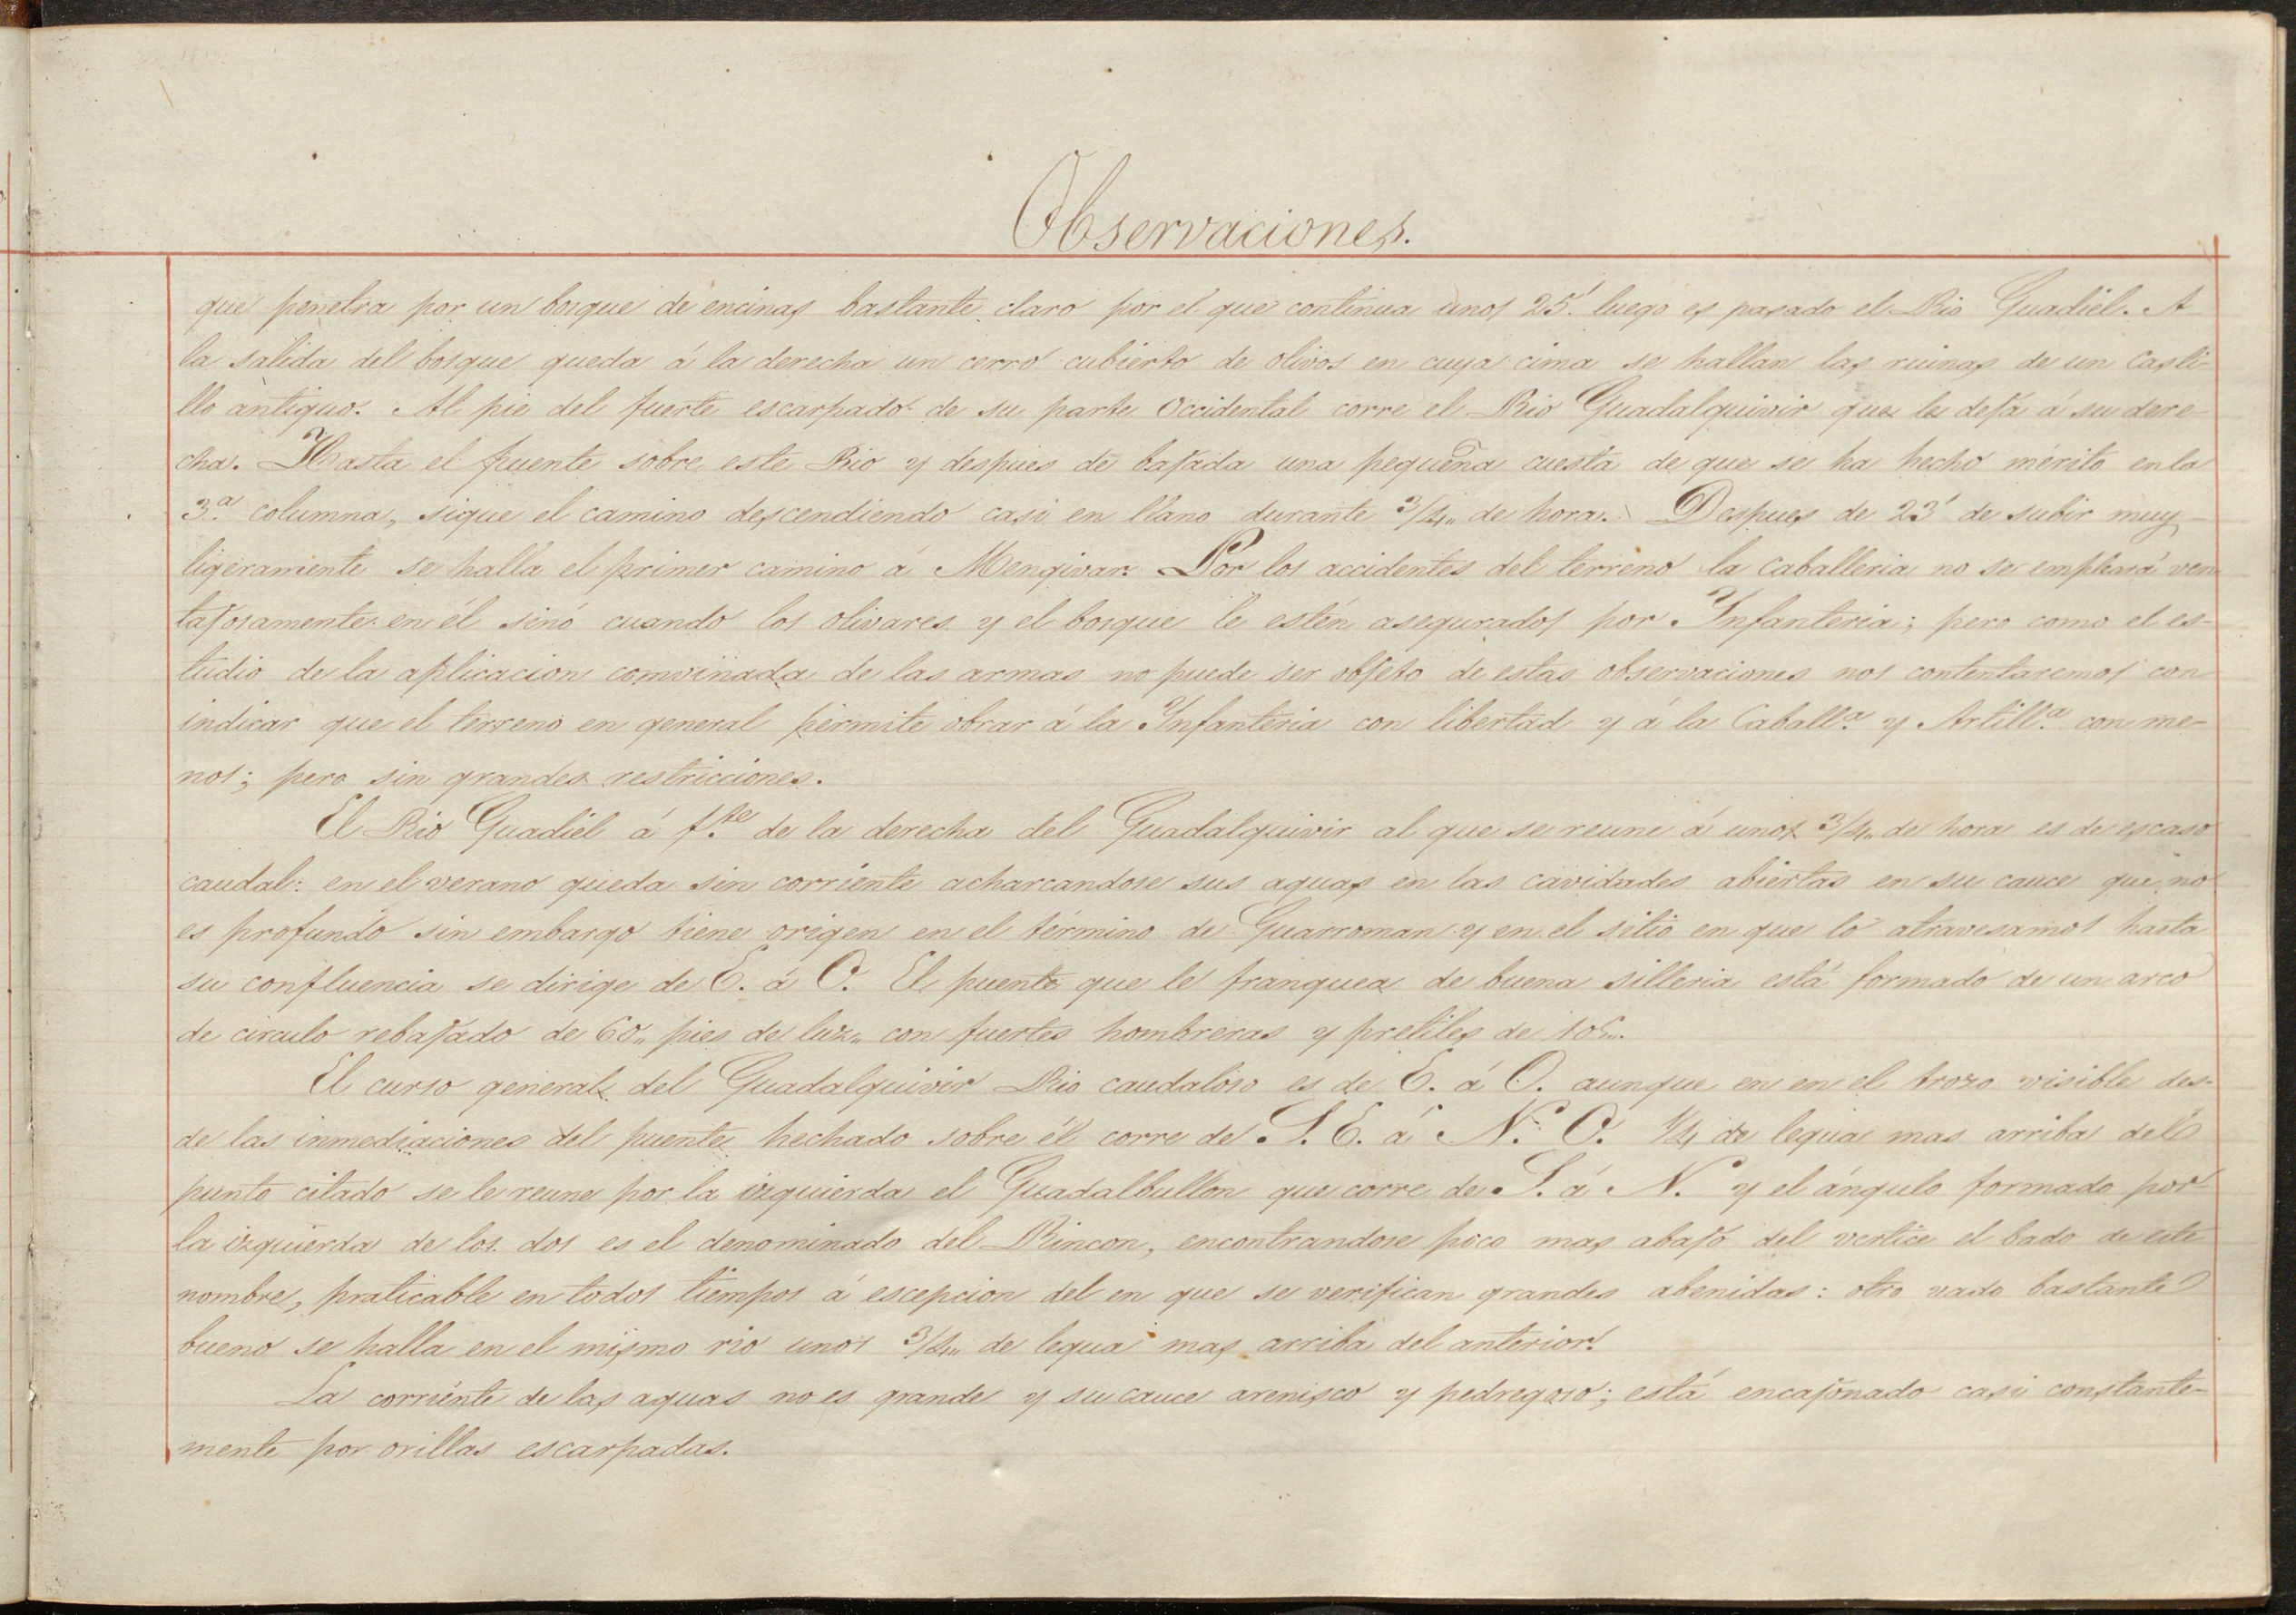 Observaciones.
que penetra por un bosque de encinas bastante claro por el que continua unos 25'. luego es pasado el Rio Guadiel. A
la salida del bosque queda á la derecha un cerro cubierto de olivos en cuya cima se hallan las ruinas de un casti-
llo antiguo. Al pie del fuerte escarpado de su parte Occidental corre el Rio Guadalquivir que le deja á su dere-
cha. Hasta el puente sobre este Rio y despues de bajada una pequeña cuesta de que se ha hecho mérito en la
3.ª columna, sigue el camino descendiendo casi en llano durante 3/4,, de hora. Despues de 23' de subir muy
ligeramente se halla el primer camino á Mengivar. Por los accidentes del terreno la caballeria no se empleará ven
tajosamente en él sinó cuando los olivares y el bosque le estén asegurados por Infanteria; pero como el es-
tudio de la aplicacion comvinada de las armas no puede ser objeto de estas observaciones nos contentaremos con
indicar que el terreno en general permite obrar á la Infanteria con libertad y á la Caball.ª y Artill.ª con me-
nos; pero sin grandes restricciones.
El Rio Guadiel á f.te de la derecha del Guadalquivir al que se reune á unos 3/4,, de hora es de escaso
caudal: en el verano queda sin corriente acharcandose sus aguas en las cavidades abiertas en su cauce que no
es profundo sin embargo tiene origen en el término de Guarroman y en el sitio en que lo atravesamos hasta
su confluencia se dirige de E. á O. El puente que le franquea de buena silleria está formado de un arco
de circulo rebajado de 60,, pies de luz,, con fuertes hombreras y pretiles de
El curso general del Guadalquivir Rio caudaloso es de E. á O. aunque en en el trozo visible des-
de las inmediaciones del puente hechado sobre él corre de S. E. á N. O. 1/4 de legua mas arriba del
punto citado se le reune por la izquierda el Guadalbullon que corre de S. á N. y el ángulo formado por
la izquierda de los dos es el denominado del Rincon, encontrandose poco mas abajo del vertice el bado de este
nombre, praticable en todos tiempos á escepcion del en que se verifican grandes abenidas: otro vado bastante
bueno se halla en el mismo rio unos 3/4,, de legua mas arriba del anterior.
La corriente de las aguas no es grande y su cauce arenisco y pedregoso; está encajonado casi constante-
mente por orillas escarpadas.